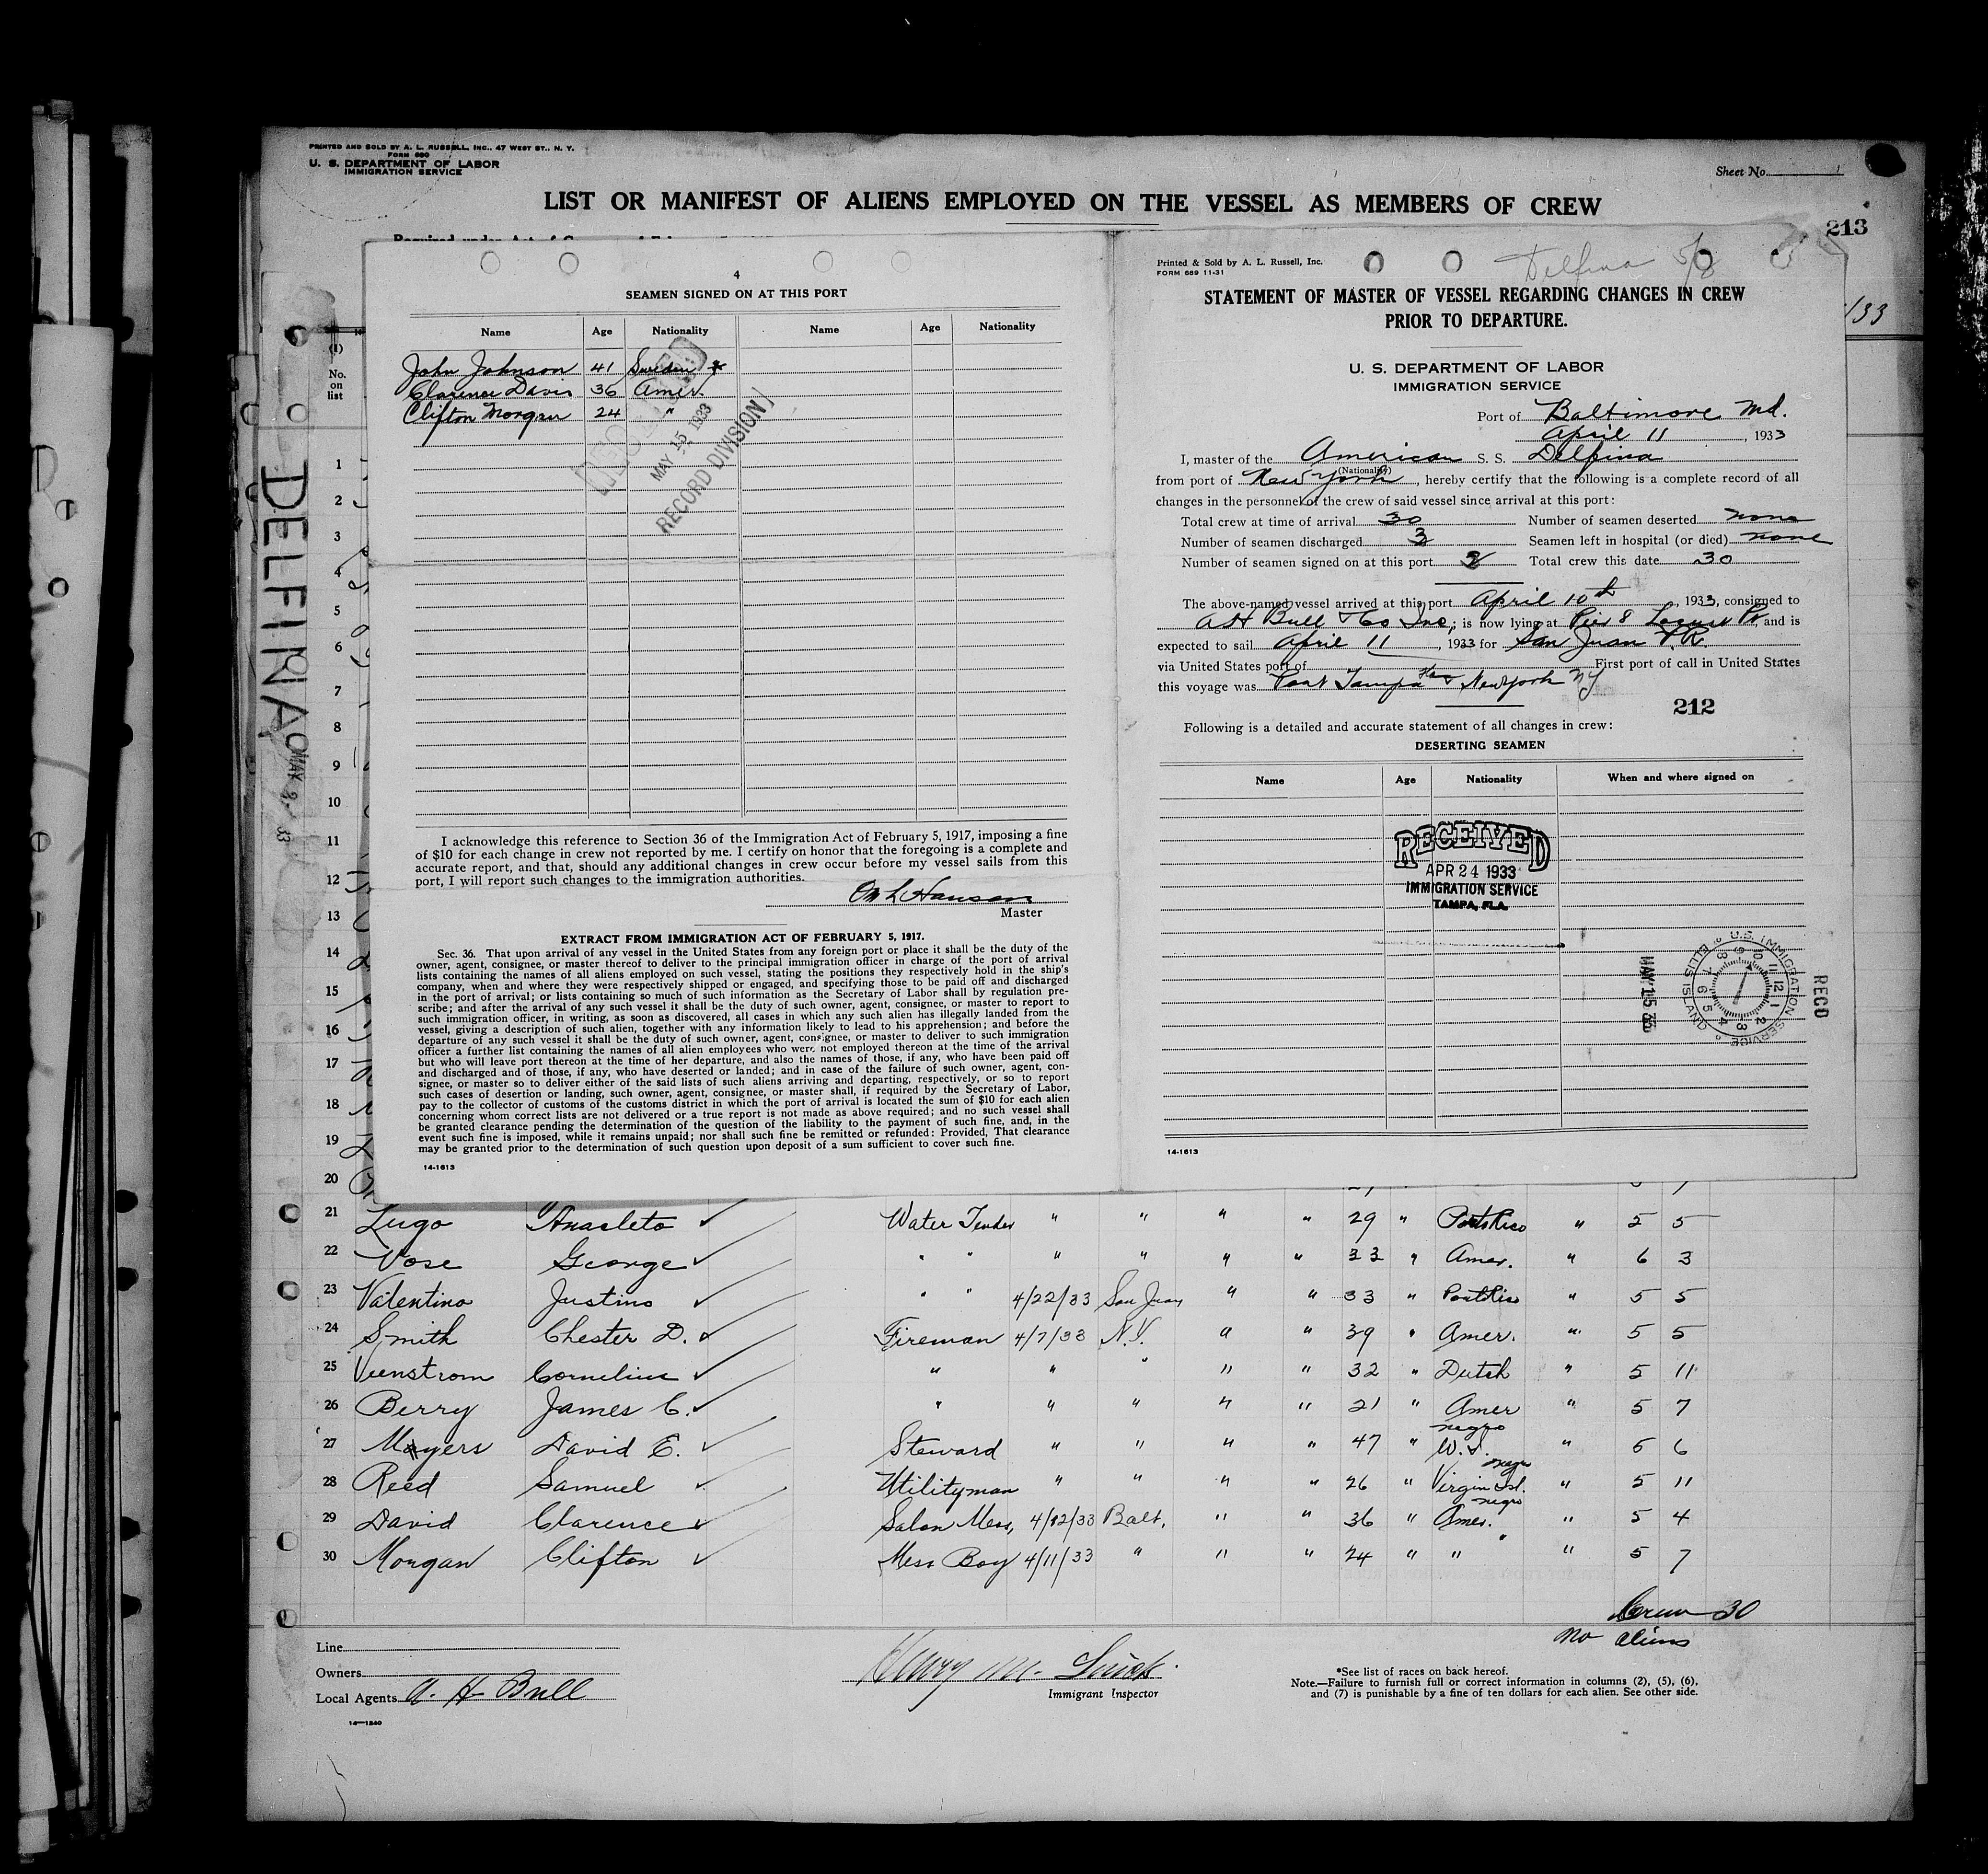 PRINTED AND SOLD BY A. L. RUSSELL, INC., 47 WEST ST., N. Y.
FORM 680
U. S. DEPARTMENT OF LABOR
IMMIGRATION SERVICE
Sheet No. 1
LIST OR MANIFEST OF ALIENS EMPLOYED ON THE VESSEL AS MEMBERS OF CREW
213
/33
(1)
No. on list
DELFINA
4
SEAMEN SIGNED ON AT THIS PORT
Name Age Nationality Name Age Nationality
John Johnson 41 Sweden
Clarence Davis 36 Amer.
Clifton Morgan 24 "
RECEIVED
MAY 15 1933
RECORD DIVISION
I acknowledge this reference to Section 36 of the Immigration Act of February 5, 1917, imposing a fine
of $10 for each change in crew not reported by me. I certify on honor that the foregoing is a complete and
accurate report, and that, should any additional changes in crew occur before my vessel sails from this
port, I will report such changes to the immigration authorities.
Hansen
Master
EXTRACT FROM IMMIGRATION ACT OF FEBRUARY 5, 1917.
Sec. 36. That upon arrival of any vessel in the United States from any foreign port or place it shall be the duty of the
owner, agent, consignee, or master thereof to deliver to the principal immigration officer in charge of the port of arrival
lists containing the names of all aliens employed on such vessel, stating the positions they respectively hold in the ship's
company, when and where they were respectively shipped or engaged, and specifying those to be paid off and discharged
in the port of arrival; or lists containing so much of such information as the Secretary of Labor shall by regulation pre-
scribe; and after the arrival of any such vessel it shall be the duty of such owner, agent, consignee, or master to report to
such immigration officer, in writing, as soon as discovered, all cases in which any such alien has illegally landed from the
vessel, giving a description of such alien, together with any information likely to lead to his apprehension; and before the
departure of any such vessel it shall be the duty of such owner, agent, consignee, or master to deliver to such immigration
officer a further list containing the names of all alien employees who were not employed thereon at the time of the arrival
but who will leave port thereon at the time of her departure, and also the names of those, if any, who have been paid off
and discharged and of those, if any, who have deserted or landed; and in case of the failure of such owner, agent, con-
signee, or master so to deliver either of the said lists of such aliens arriving and departing, respectively, or so to report
such cases of desertion or landing, such owner, agent, consignee, or master shall, if required by the Secretary of Labor,
pay to the collector of customs of the customs district in which the port of arrival is located the sum of $10 for each alien
concerning whom correct lists are not delivered or a true report is not made as above required; and no such vessel shall
be granted clearance pending the determination of the question of the liability to the payment of such fine, and, in the
event such fine is imposed, while it remains unpaid; nor shall such fine be remitted or refunded: Provided, That clearance
may be granted prior to the determination of such question upon deposit of a sum sufficient to cover such fine.
14-1613
Printed & Sold by A. L. Russell, Inc.
FORM 689 11-31
Delfina 5/8
STATEMENT OF MASTER OF VESSEL REGARDING CHANGES IN CREW
PRIOR TO DEPARTURE.
U. S. DEPARTMENT OF LABOR
IMMIGRATION SERVICE
Port of Baltimore Md.
April 11, 1933
I, master of the American S. S. Delfina
(Nationality)
from port of New York, hereby certify that the following is a complete record of all
changes in the personnel of the crew of said vessel since arrival at this port:
Total crew at time of arrival 30 Number of seamen deserted none
Number of seamen discharged 3 Seamen left in hospital (or died) none
Number of seamen signed on at this port 3 Total crew this date 30
The above-named vessel arrived at this port April 10th, 1933, consigned to
A H Bull & Co Inc; is now lying at Pier 8 Locust Pt, and is
expected to sail April 11, 1933 for San Juan P.R.
via United States port of First port of call in United States
this voyage was Port Tampa Fla & New York NY
212
Following is a detailed and accurate statement of all changes in crew:
DESERTING SEAMEN
Name Age Nationality When and where signed on
RECEIVED
APR 24 1933
IMMIGRATION SERVICE
TAMPA, FLA.
RECD
MAY 15 33
U.S. IMMIGRATION SERVICE
ELLIS ISLAND
14-1613
1
2
3
4
5
6
7
8
9
10
11
12
13
14
15
16
17
18
19
20
21 Lugo Anacleto Water Tender " " " " 29 " Porto Rico " 5 5
22 Vose George " " " " " " 33 " Amer. " 6 3
23 Valentino Justino " " 4/22/33 San Juan " " 33 " Porto Rico " 5 5
24 Smith Chester D. Fireman 4/7/33 N.Y. " " 39 " Amer. " 5 5
25 Veenstrom Cornelius " " " " " 32 " Dutch " 5 11
26 Berry James C. " " " " " 21 " Amer " 5 7
27 Mayers David E. Steward " " " " 47 " negro W.I. " 5 6
28 Reed Samuel Utilityman " " " " 26 " negro Virgin Isl. " 5 11
29 David Clarence Salon Mess, 4/12/33 Balt. " " 36 " negro Amer. " 5 4
30 Morgan Clifton Mess Boy 4/11/33 " " " 24 " " " " 5 7
Crew 30
no aliens
Line
Owners
Local Agents A. H Bull
Henry M.
Immigrant Inspector
*See list of races on back hereof.
Note.—Failure to furnish full or correct information in columns (2), (5), (6),
and (7) is punishable by a fine of ten dollars for each alien. See other side.
14—1240